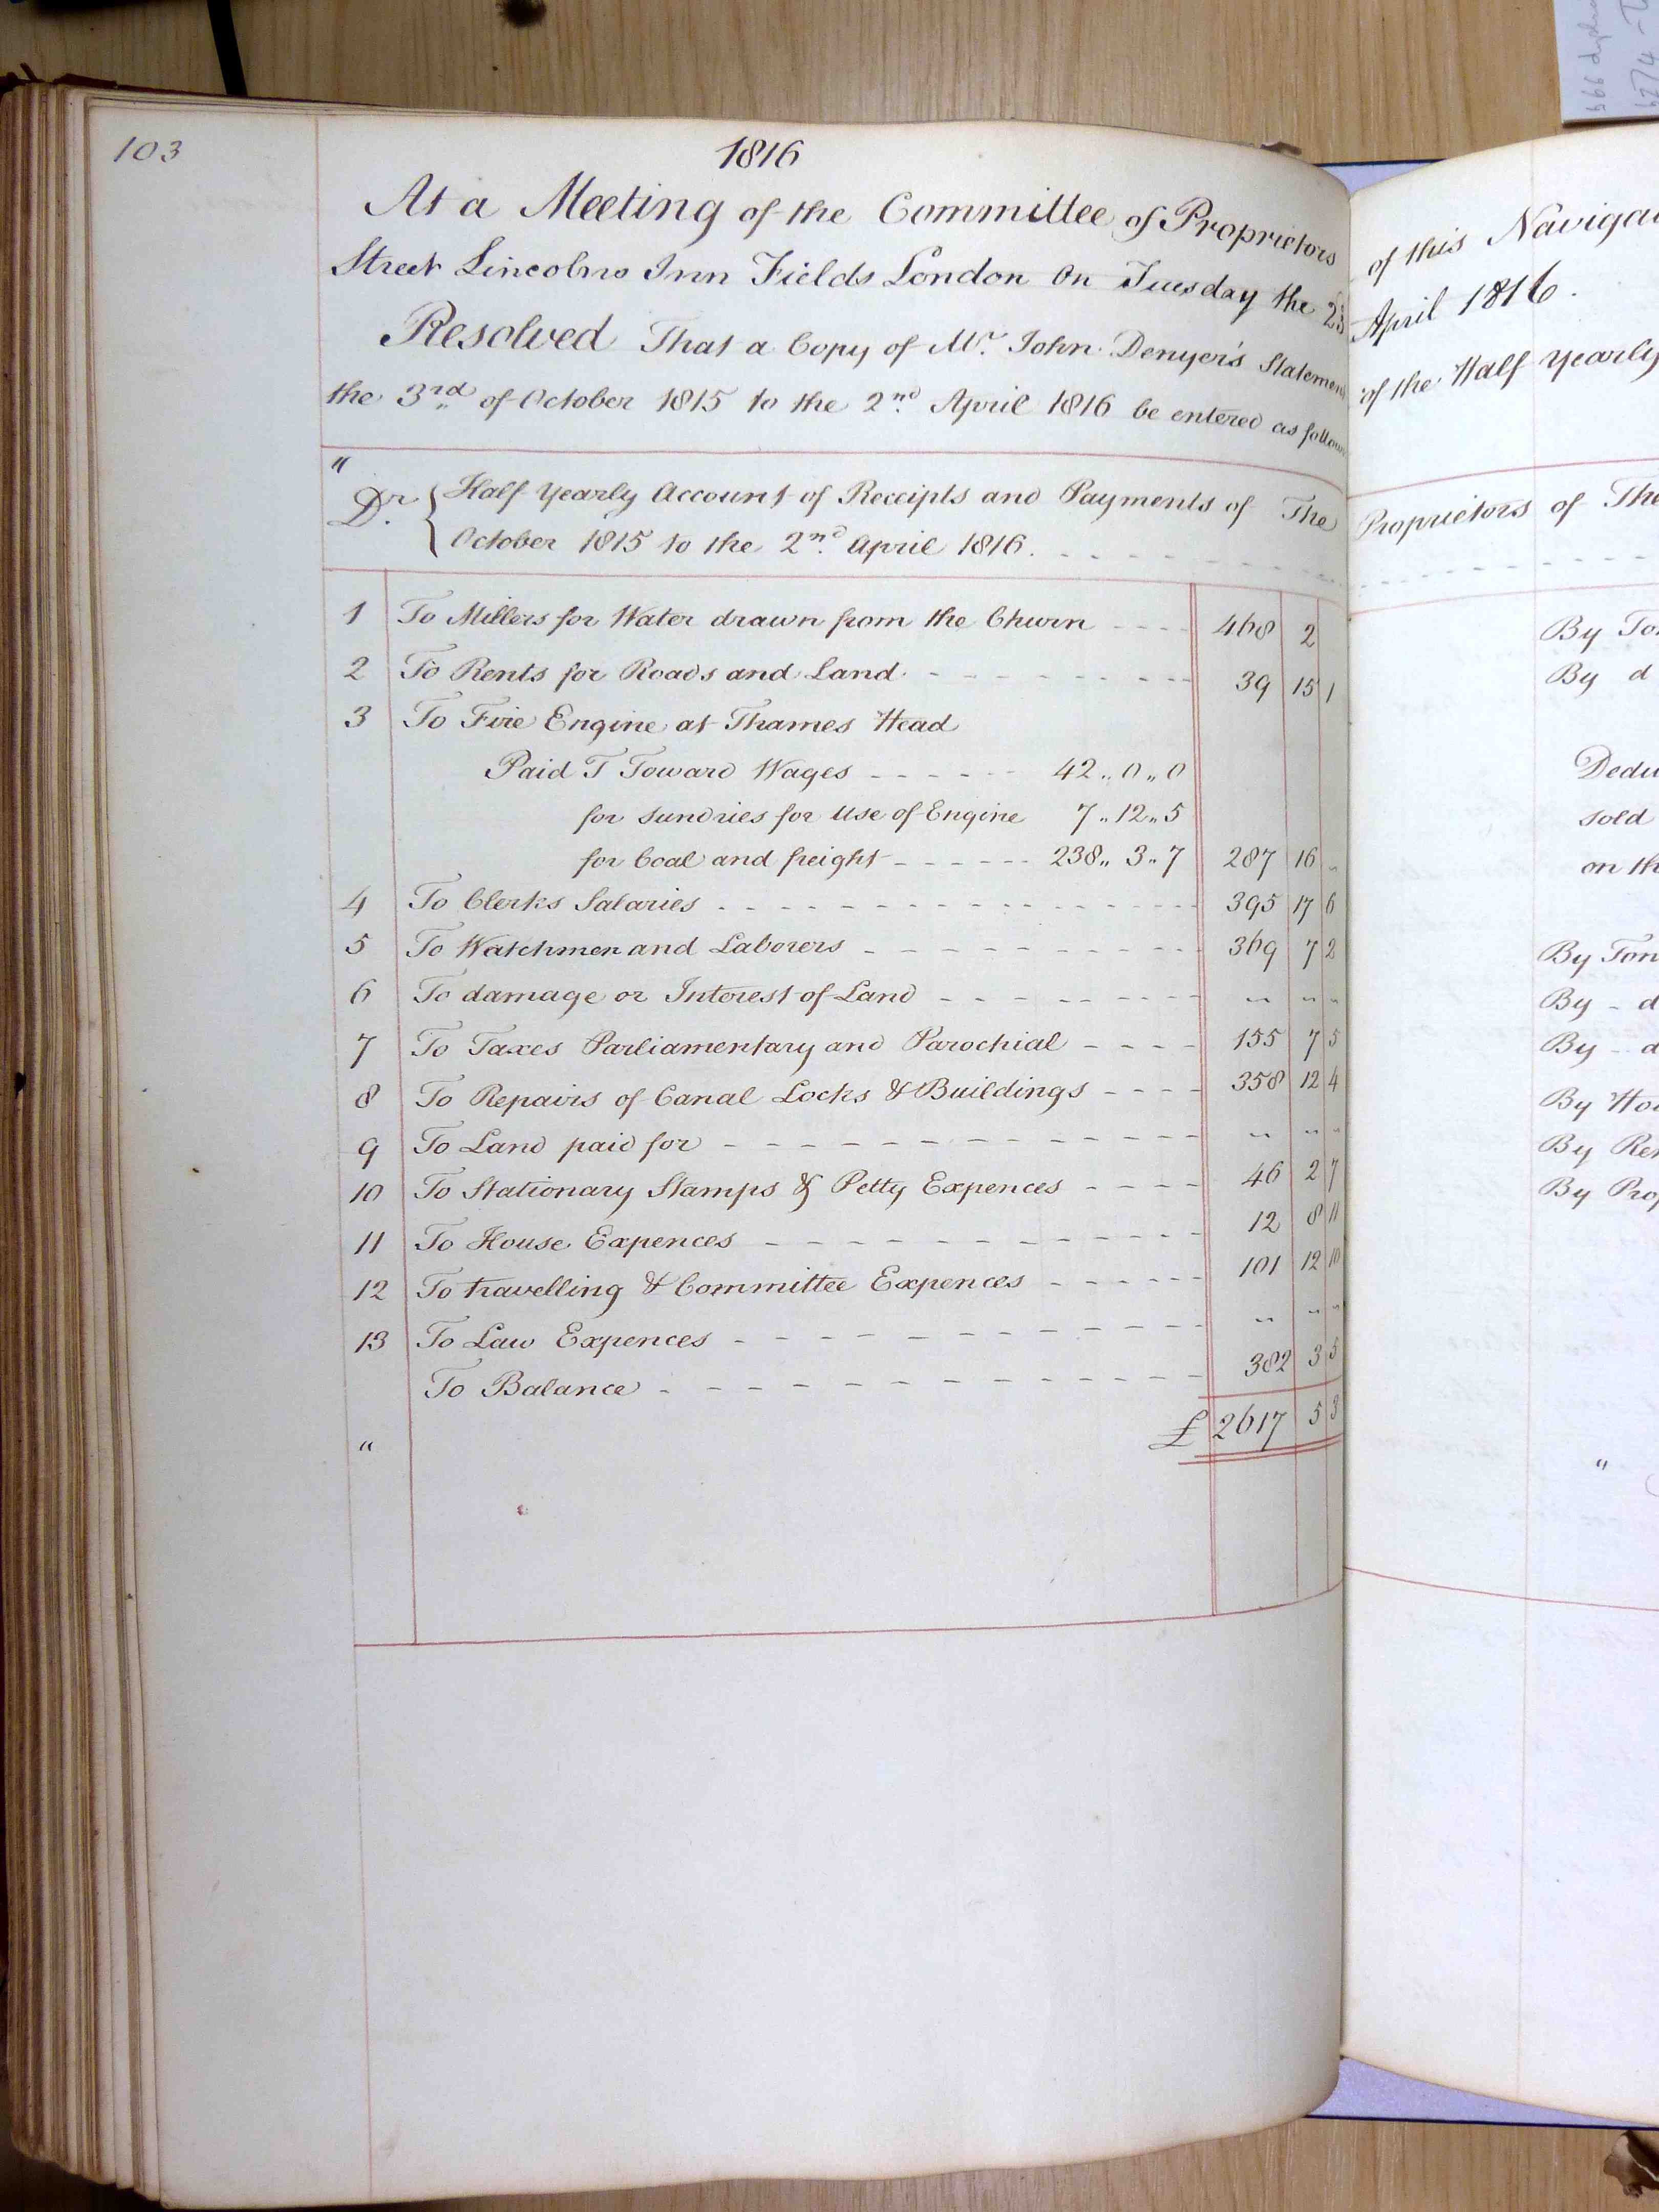 103
1816
At a Meeting of the Committee of Proprietors
Street Lincolns Inn Fields London On Tuesday the 23
Resolved That a Copy of Mr. John Denyer's Statement
the 3rd of October 1815 to the 2nd April 1816 be entered as follows
"
Dr. { Half Yearly Account of Receipts and Payments of The
October 1815 to the 2nd April 1816.
1 To Millers for Water drawn from the Churn 468 2
2 To Rents for Roads and Land 39 15 1
3 To Fire Engine at Thames Head
Paid T Toward Wages 42 .. 0 .. 0
for Sundries for Use of Engine 7 .. 12 .. 5
for Coal and freight 238 .. 3 .. 7 287 16 ..
4 To Clerks Salaries 395 17 6
5 To Watchmen and Laborers 369 7 2
6 To damage or Interest of Land .. .. ..
7 To Taxes Parliamentary and Parochial 155 7 5
8 To Repairs of Canal Locks & Buildings 358 12 4
9 To Land paid for .. .. ..
10 To Stationary Stamps & Petty Expences 46 2 7
11 To House Expences 12 8 11
12 To travelling & Committee Expences 101 12 10
13 To Law Expences .. .. ..
To Balance 382 3 5
" £ 2617 5 3
of this
April 1816.
of the Half yearly
Proprietors of The
By
By d
sold
on
By
By - d
By - d
By
By
By
"